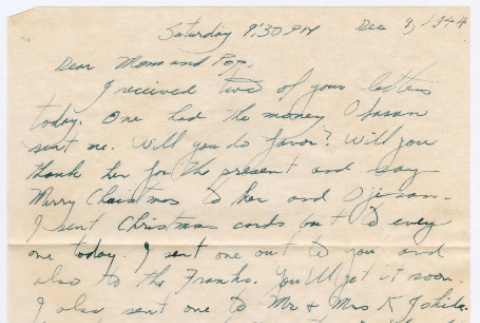 Saturday 9:30 PM Dec 9, 1944
Dear Mom and Pop,
I received two of your letters
today. One had the money Obasan
sent me. Will you do favor? Will you
thank her for the present and say
Merry Christmas to her and Ojisan.
I sent Christmas cards out to every
one today. I sent one out to you and
also to the Franks. You'll get it soon.
I also sent one to Mr & Mrs K